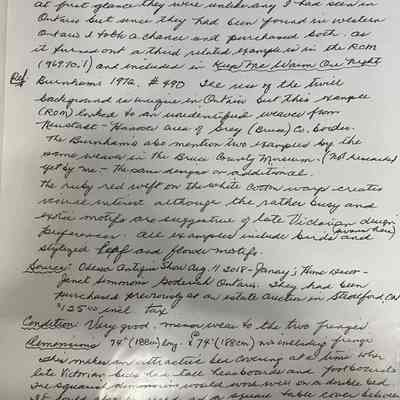 at first glance they were unlike any I had seen in
Ontario but since they had been found in western
Ontario I took a chance and purchased both. As
it turned out a third related example is in the ROM
(969.70.1) and included in Keep Me Warm One Night
Ref Burnhams 1972, # 490 The use of the twill
background is unique in Ontario but this example
(ROM) linked to an unidentified weaver from
Neustadt - Hanover area of Grey (Bruce) Co. border.
The Burnhams also mention two examples by the
same weaver in the Bruce County Museum. (Not researched
yet by me - the same design or additional.
The ruby red weft on the white cotton warp creates
visual interest although the rather busy and
motifs are suggestive of late Victorian design
preferences. All examples include birds and
stylized leaf and flower motifs.
Source: Odessa Antique Show Aug. 11 2018 - Home Decor -
Janet Simmons Goderich Ontario. They had been
purchased previously at an estate auction in Stratford, Ont
$125.00 incl. tax
Condition: Very good, minor wear to the two fringes
Dimensions 74" (188cm) long. x 74" (188cm) not including fringe
This makes an attractive bed covering at a time when
late Victorian beds had tall headboards and footboards
The squarish dimensions would work well on a double bed.
It could also be used as a square table cover between